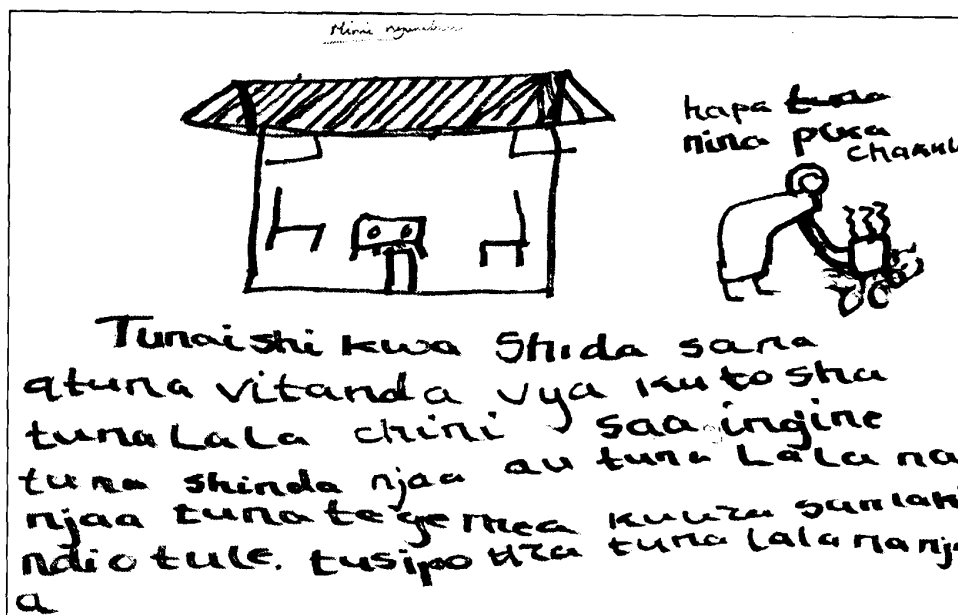 hapa tuna
nina pika
chakul
Tunaishi kwa Shida sana
atuna vitanda vya kutosha
tunaLaLa chini saa ingine
tuna shinda njaa au tuna Lala na
njaa tunategemea kuuza samaki
ndio tule. tusipo uza tuna lala na nja
a